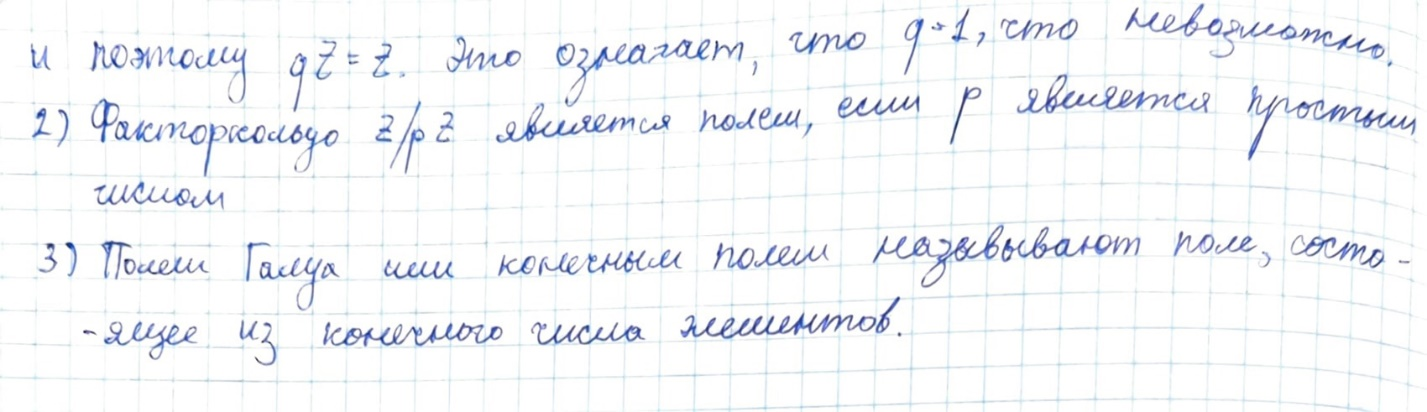 и поэтому qZ = Z. Это означает, что q=1, что невозможно.
2) Факторкольцо Z/pZ является полем, если p является простым
числом
3) Полем Галуа или конечным полем называывают поле, состо-
-ящее из конечного числа элементов.